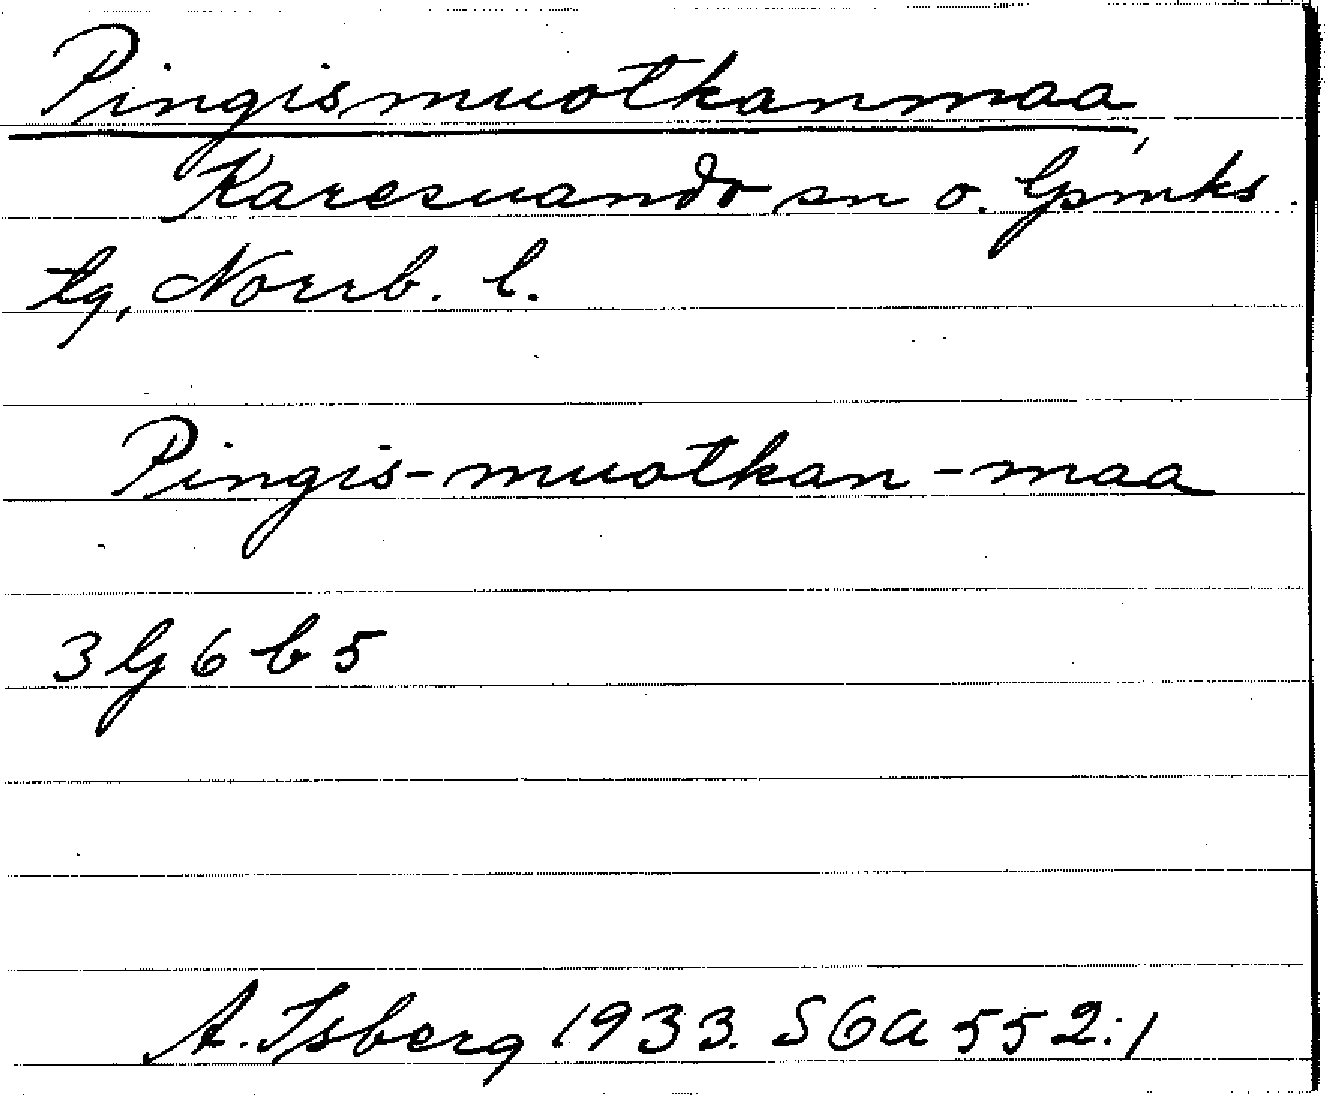 Pingismuotkanmaa,
Karesuando sn o. lpmks.
tg, Norrb. l.
Pingis-muotkan-maa
3 lg 6 b 5
A. Isberg 1933. SGA 552:1